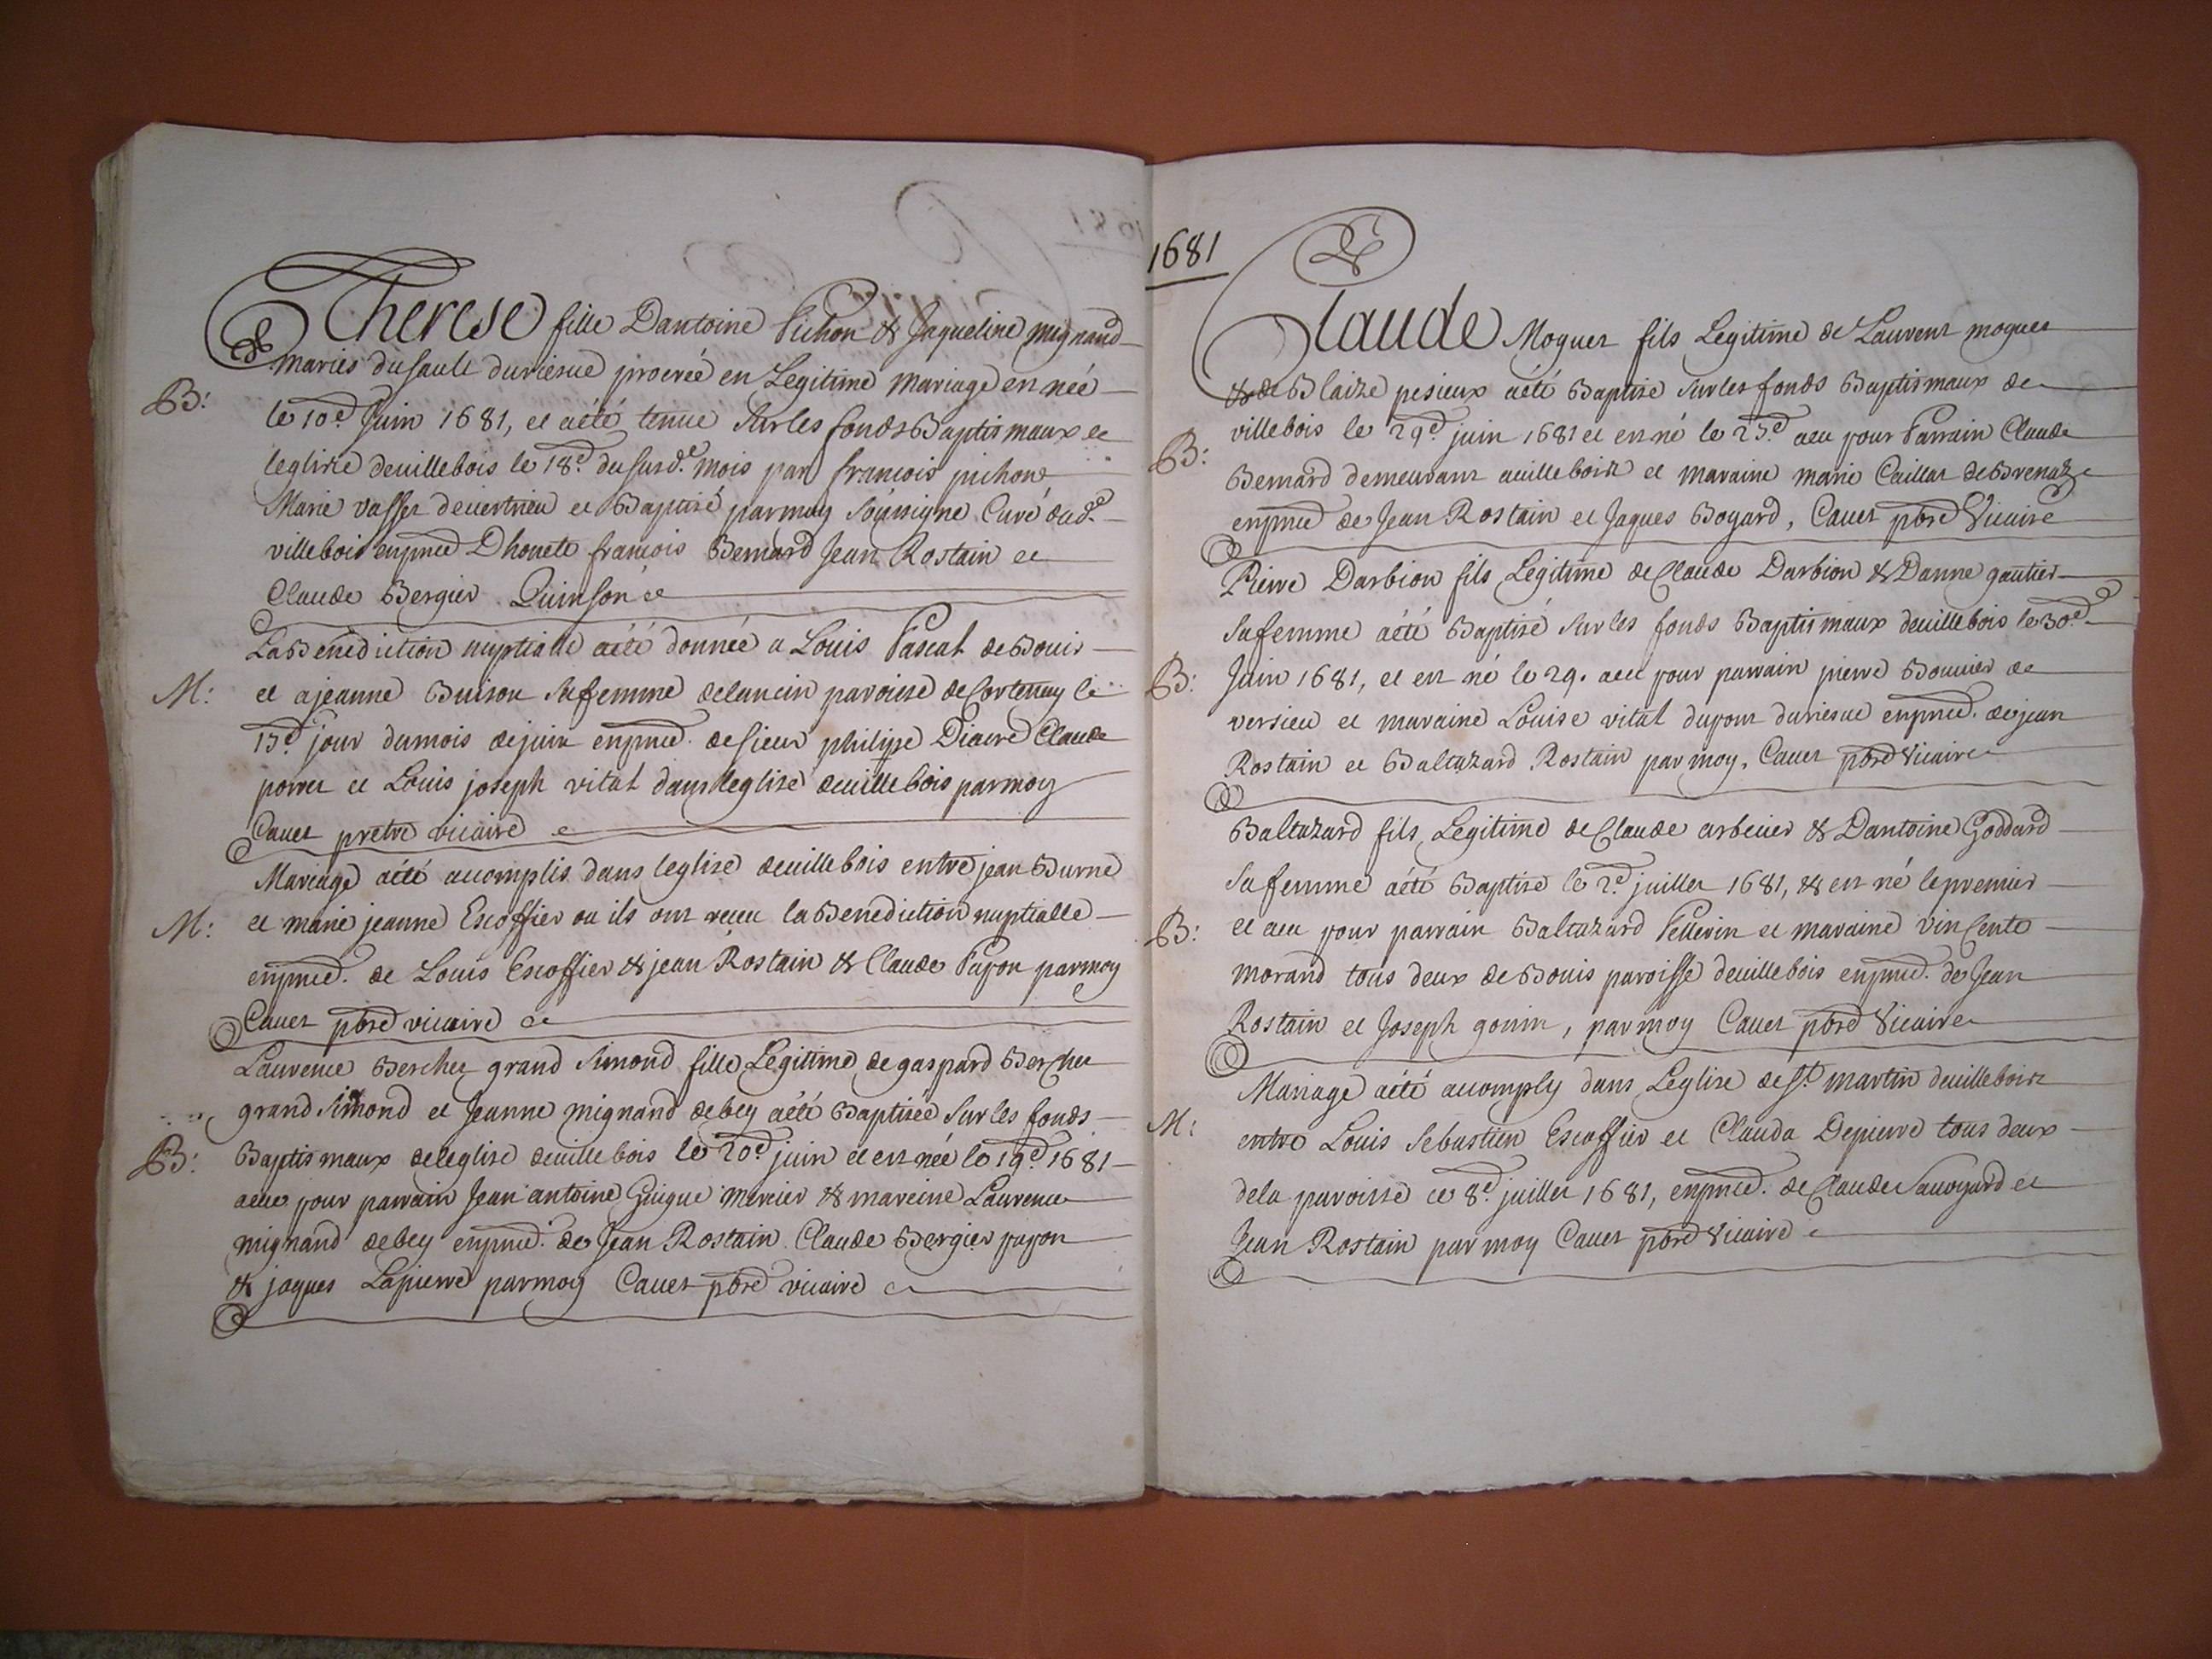 Therese fille Dantoine Pichon & Jaqueline mignand
mariés du sault duriesue procréé en Legitime mariage en née
B:
le 10e Juin 1681, et aété tenue sur les fonds Baptismaux de
leglize deuillebois le 18e du susd.e mois par francois pichon
Marie vasser deuertrieu et Baptisé parmoy soussigné Curé dud.e
villebois enpnce Dhonete francois Bernard Jean Rostain et
Claude Bergier Quinson
La Benediction nuptialle aété donnée a Louis Pascal de Bouis
M:
et ajeanne Buison sa femme delancin paroisse de Cortenay le
15e jour dumois dejuin enpnce de sieur philippe Diacre Claude
et Louis joseph vital dans leglise deuillebois parmoy
Cauet pretre vicaire
Mariage aété acomplis dans leglise deuillebois entre jean Burne
M:
et marie jeanne Escoffier ou ils ont receu la Benediction nuptialle
enpnce. de Louis Escoffier & jean Rostain & Claude Papon parmoy
Cauet pbre vicaire
Laurence Berchet grand Simond fille Legitime de gaspard Berchet
grand Simond et Jeanne mignand de bey aété Baptisée sur les fonds
B:
Baptismaux deleglise deuillebois le 20e juin et en née le 19e 1681
aeue pour parrain Jean antoine Guigue mercier & mareine Laurence
mignand debey enpnce. de Jean Rostain Claude Bergier papon
& jaques Lapierre parmoy Cauet pbre vicaire
1681
Claude Moguet fils Legitime de Laurent moguet
& de Blaize pesieux aété Baptisé sur les fonds Baptismaux de
villebois le 29e juin 1681 et en né le 25e aeu pour Parrain Claude
B:
Bernard demeurant auillebois et maraine marie Caillat de Brenaz
enpnce de Jean Rostain et Jaques Boyard, Cauet pbre Vicaire
Pierre Darbion fils Legitime de Claude Darbion & Danne gautier
sa femme aété Baptisé sur les fonds Baptismaux deuillebois le 30e
B:
Juin 1681, et en né le 29. aeu pour parrain pierre Bonnier de
versieu et maraine Louise vital dupont duriesue enpnce. de jean
Rostain et Baltazard Rostain par moy, Cauet pbre Vicaire
Baltazard fils Legitime de Claude arbeuier & Dantoine Goddard
sa femme aété Baptisé le 2e juillet 1681, & en né lepremier
B:
et aeu pour parrain Baltazard Pellerin et maraine vincente
morand tous deux de Bouis paroisse deuillebois enpnce. de Jean
Rostain et Joseph gonin, parmoy Cauet pbre Vicaire
Mariage aété acomply dans Leglise de st. martin deuillebois
M:
entre Louis Sebastien Escoffier et Clauda Depierre tous deux
dela paroisse ce 8e juillet 1681, enpnce. de Claude Sauoyard et
Jean Rostain par moy Cauet pbre Vicaire